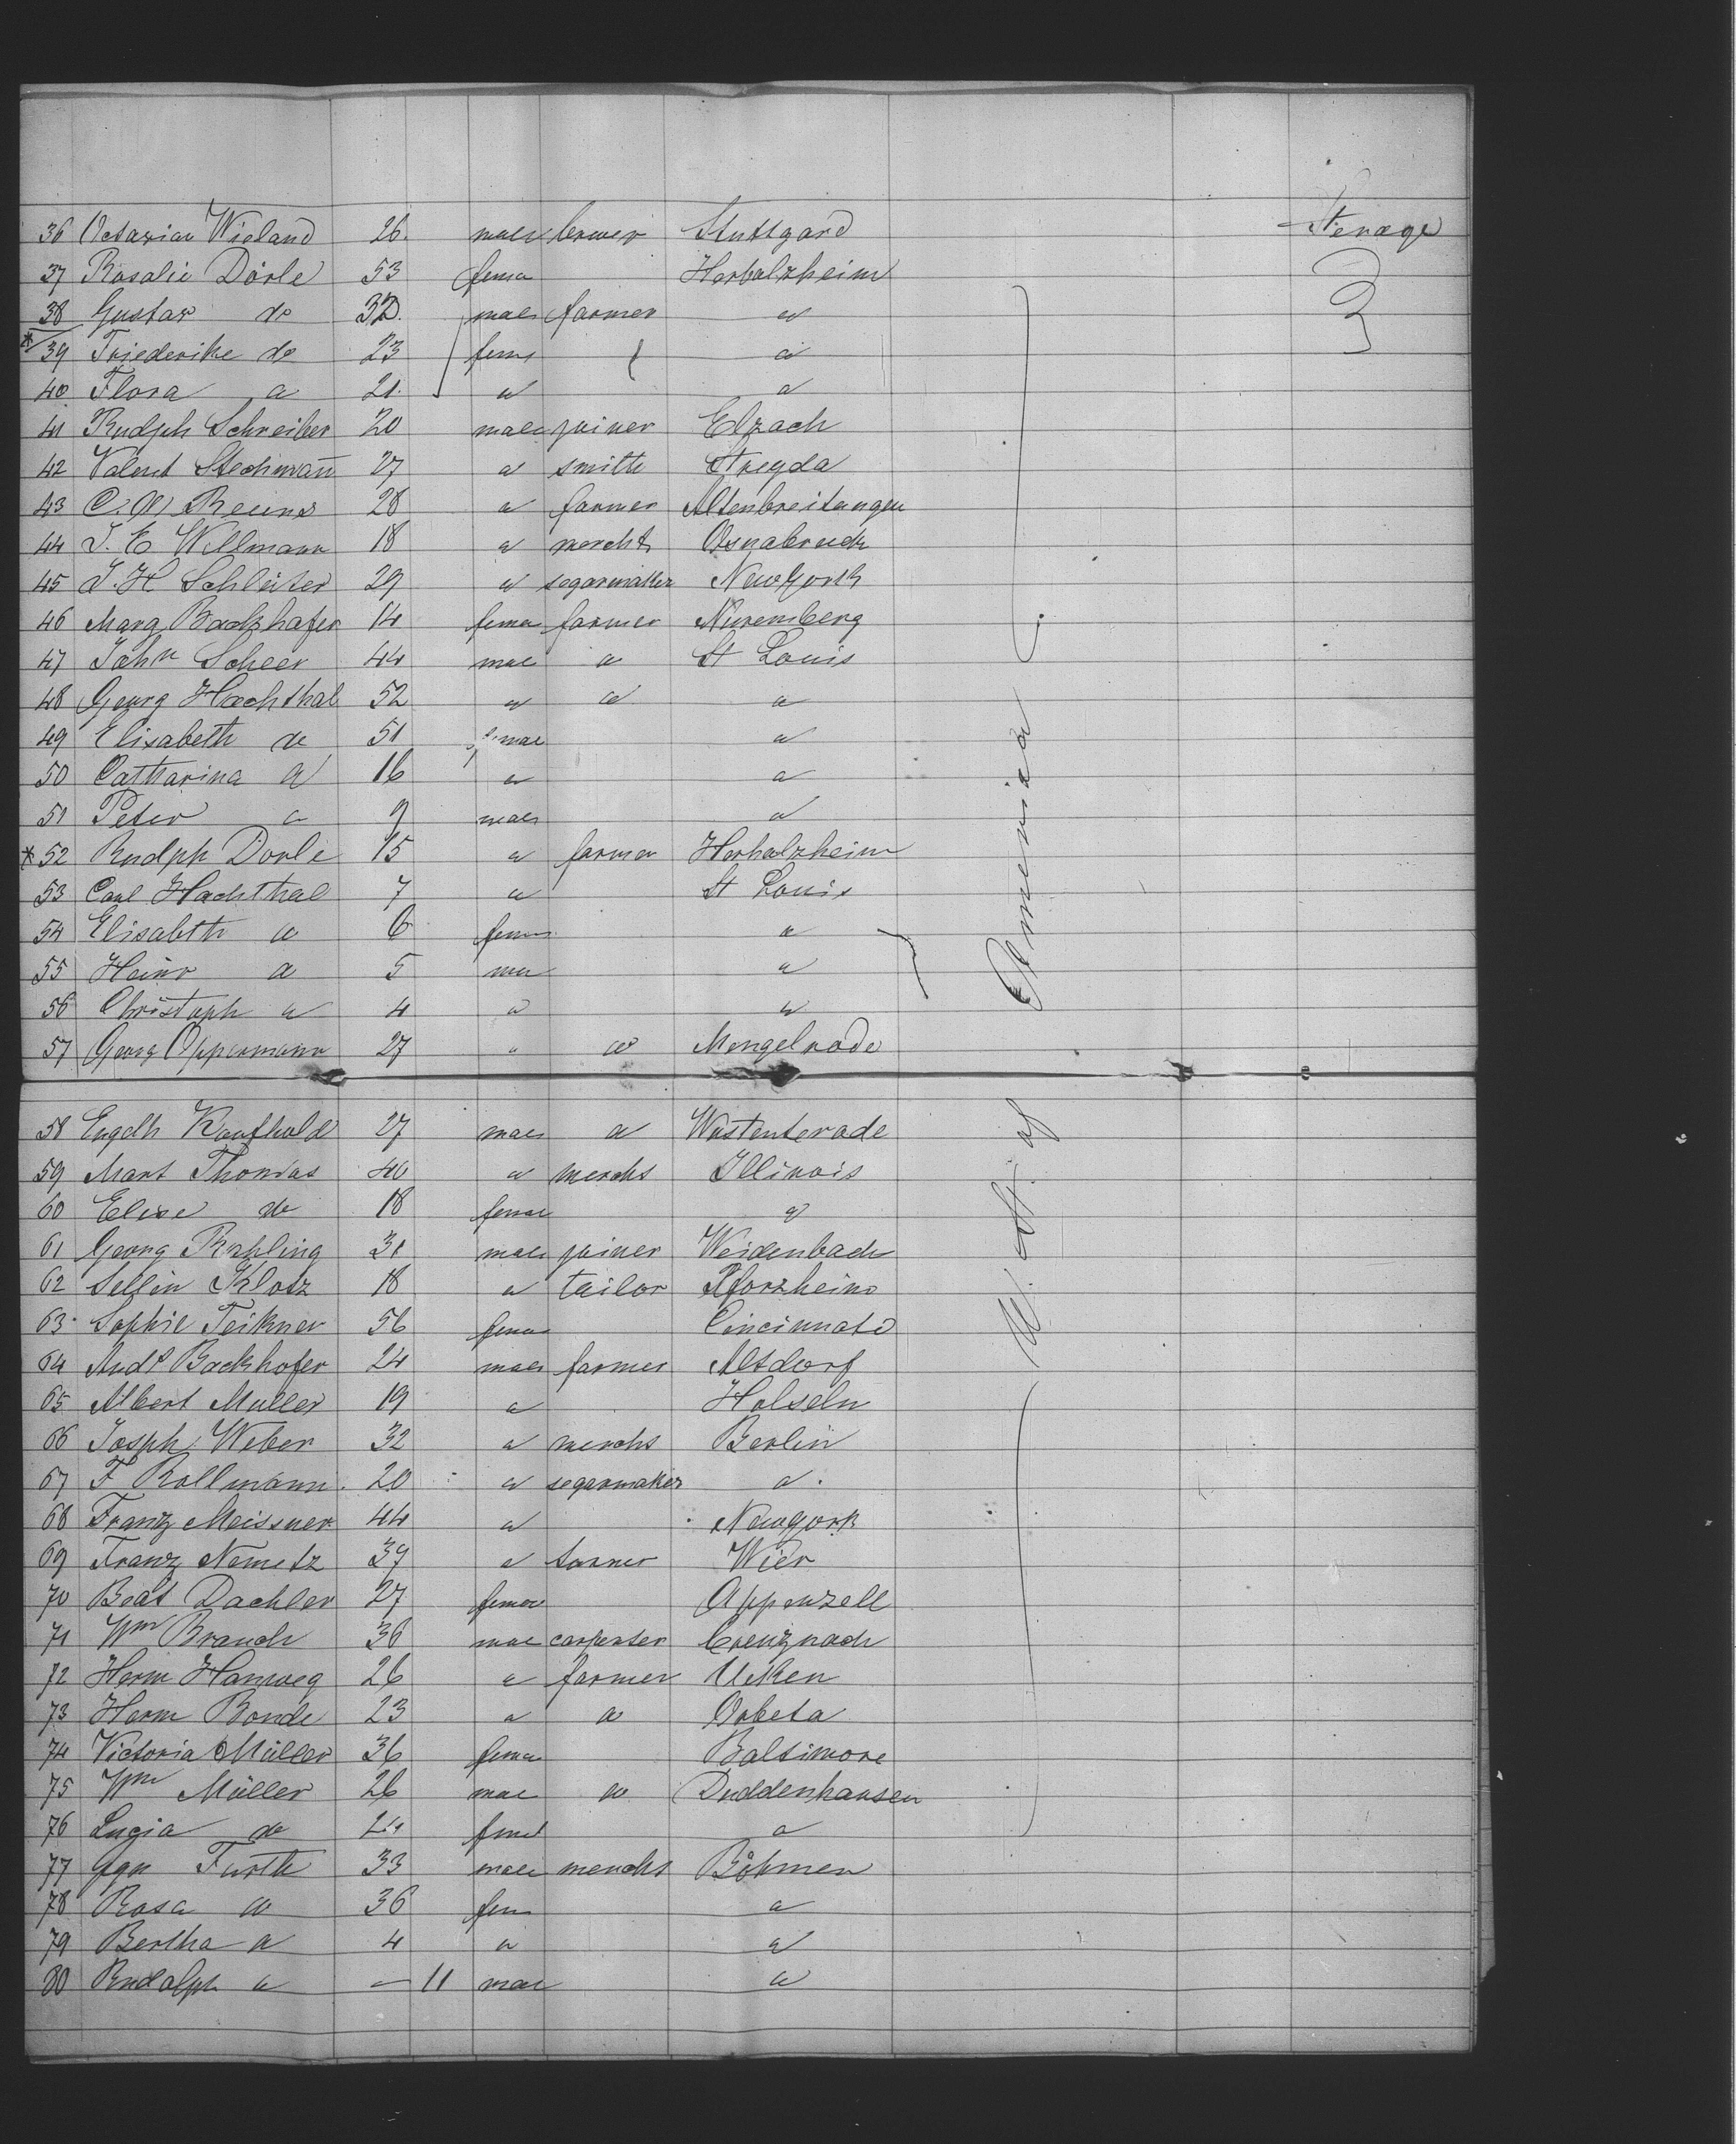 36 Octavian Wieland 26. male brewer Stuttgard Sterage
37 Rosalie Dörle 53 fema Herbolzheim
38 Gustav do 32 male farmer a
* 39 Friederike do 23 fema a
40 Flora a 21. a a
41 Rudph Schreiber 20 male joiner Elzach
42 Valent Stechmañ 27 a smith Stregda
43 C. W. 28 a farmer Altenbreitungen
44 J. E Willmann 18 a merchts Osnabruck
45 J. H Schlüter 29 a segarmaker NewYork
46 Marg Backhafer 14 fema farmer Nuremberg
47 John Scheer 44 mae a St Louis
48 Georg Hachthal 52 a a a
49 Elisabeth do 51 femae a
50 Catharina a 16 a a
51 Peter a 9 male a
* 52 Rudph Dorle 15 a farmer Herbolzheim
53 Carl Hachthal 7 a St Louis
54 Elisabth a 6 fema a
55 Heinr a 5 ma a
56 Christoph a 4 a a
57 Georg Oppermann 27 " a Mengelrode
58 Engelh Kaufhold 27 male a Wüstenterode
59 Mart Thomas 40 a merchts Illinois
60 Elise do 18 femae a
61 Georg Rahling 31 male joiner Weidenbach
62 Sellin Klotz 18 a tailor Pforzheim
63 Sophie Teikner 56 fema Cincinnati
64 Andr Backhofer 24 male farmer Altdorf
65 Albert Muller 19 a Holseln
66 Josph Weber 32 a merchts Berlin
67 F Rollmann 20 a segarmaker a
68 Franz Meissner 44 a Newyork
69 Franz Nemetz 37 a turner Wien
70 Beat Dachler 27 femae Appenzell
71 Wm Brauch 36 mae carpenter Creuznach
72 Herm Harweg 26 a farmer Ueken
73 Herm Bonde 23 a a Oebeta
74 Victoria Müller 36 fema Baltimore
75 Wm Müller 26 mae a Duddenhausen
76 Lucia do 24 femal a
77 Furth 33 male merchts Böhmen
78 Rosa a 36 fem a
79 Bertha a 4 a a
80 Rudolph a – 11 mae a
U. St. of America.